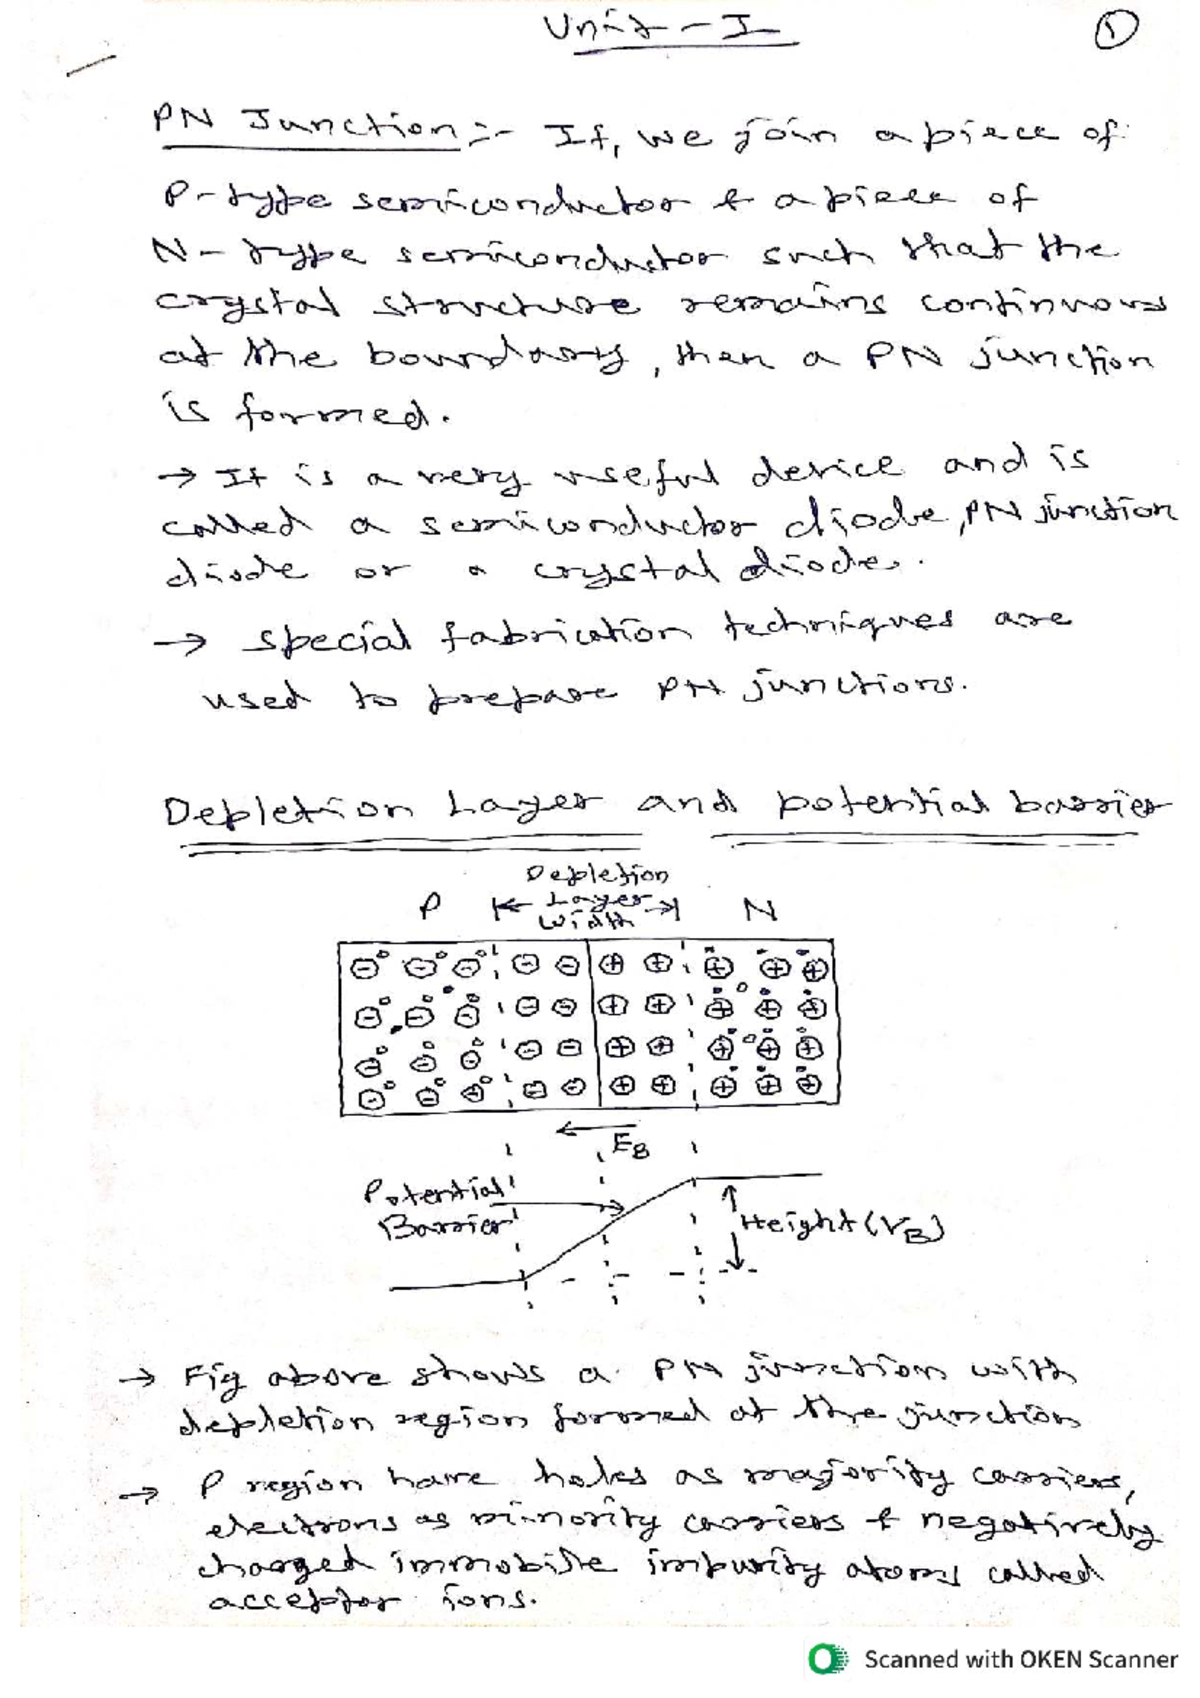 Unit - I
1
PN Junction :- If, we join a piece of
P-type semiconductor & a piece of
N-type semiconductor such that the
crystal structure remains continuous
at the boundary, then a PN junction
is formed.
→ It is a very useful device and is
called a semiconductor diode, PN junction
diode or a crystal diode.
→ special fabrication techniques are
used to prepare PN junctions.
Depletion Layer and potential barrier
Depletion
P Layer N
Width
EB
Potential
Barrier
Height (VB)
→ Fig above shows a PN junction with
depletion region formed at the junction
→ P region have holes as majority carriers,
electrons as minority carriers & negatively
charged immobile impurity atoms called
acceptor ions.
Scanned with OKEN Scanner